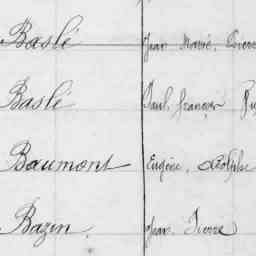 Baslé Jean Marie, Pierre
Baslé Paul, françois
Baumont Eugène, Adolphe
Bazin. Jean, Pierre